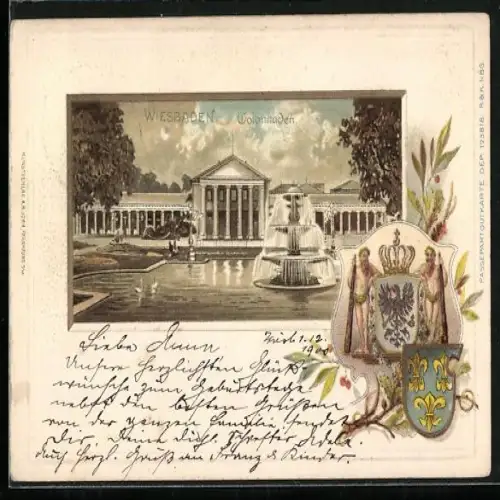 WIESBADEN. Colonnaden.
PASSEPARTOUTKARTE DEP. 123818. R&K L-BG.
1.12.
Liebe Anna
Unsere herzlichsten Glück-
wünsche zum Geburtstage
nebst den besten Grüßen
von der ganzen Familie sendet
Dir, Deine Dich Adele.
Auch herzl. Gruß an Franz & Kinder.